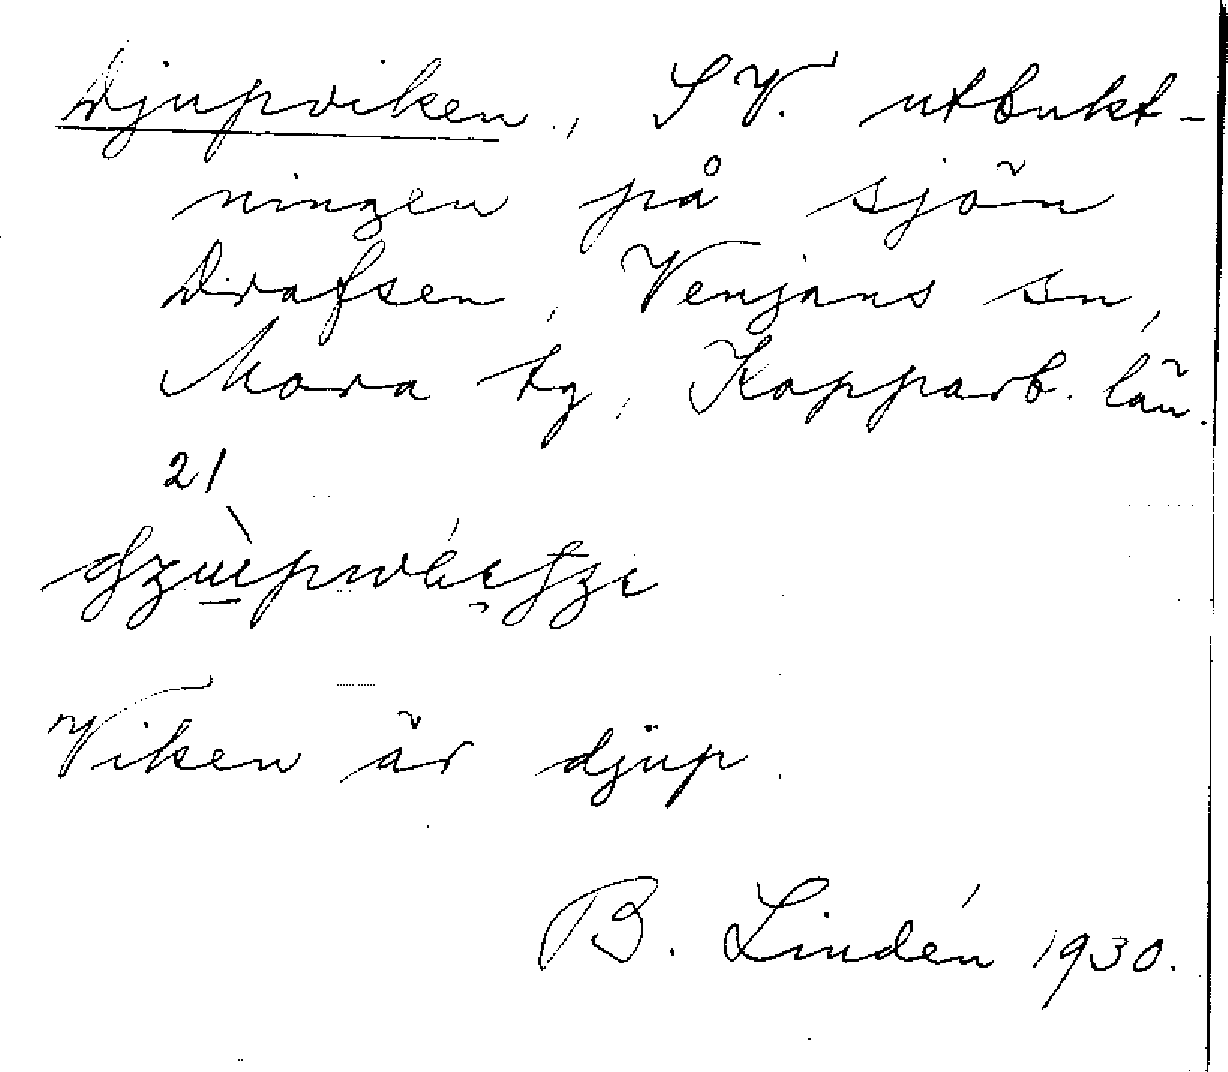 Djupviken, S V. utbukt-
ningen på sjön
Drafsen, Venjans sn,
Mora tg, Kopparb. län.
21
Viken är djup.
B. Lindén 1930.